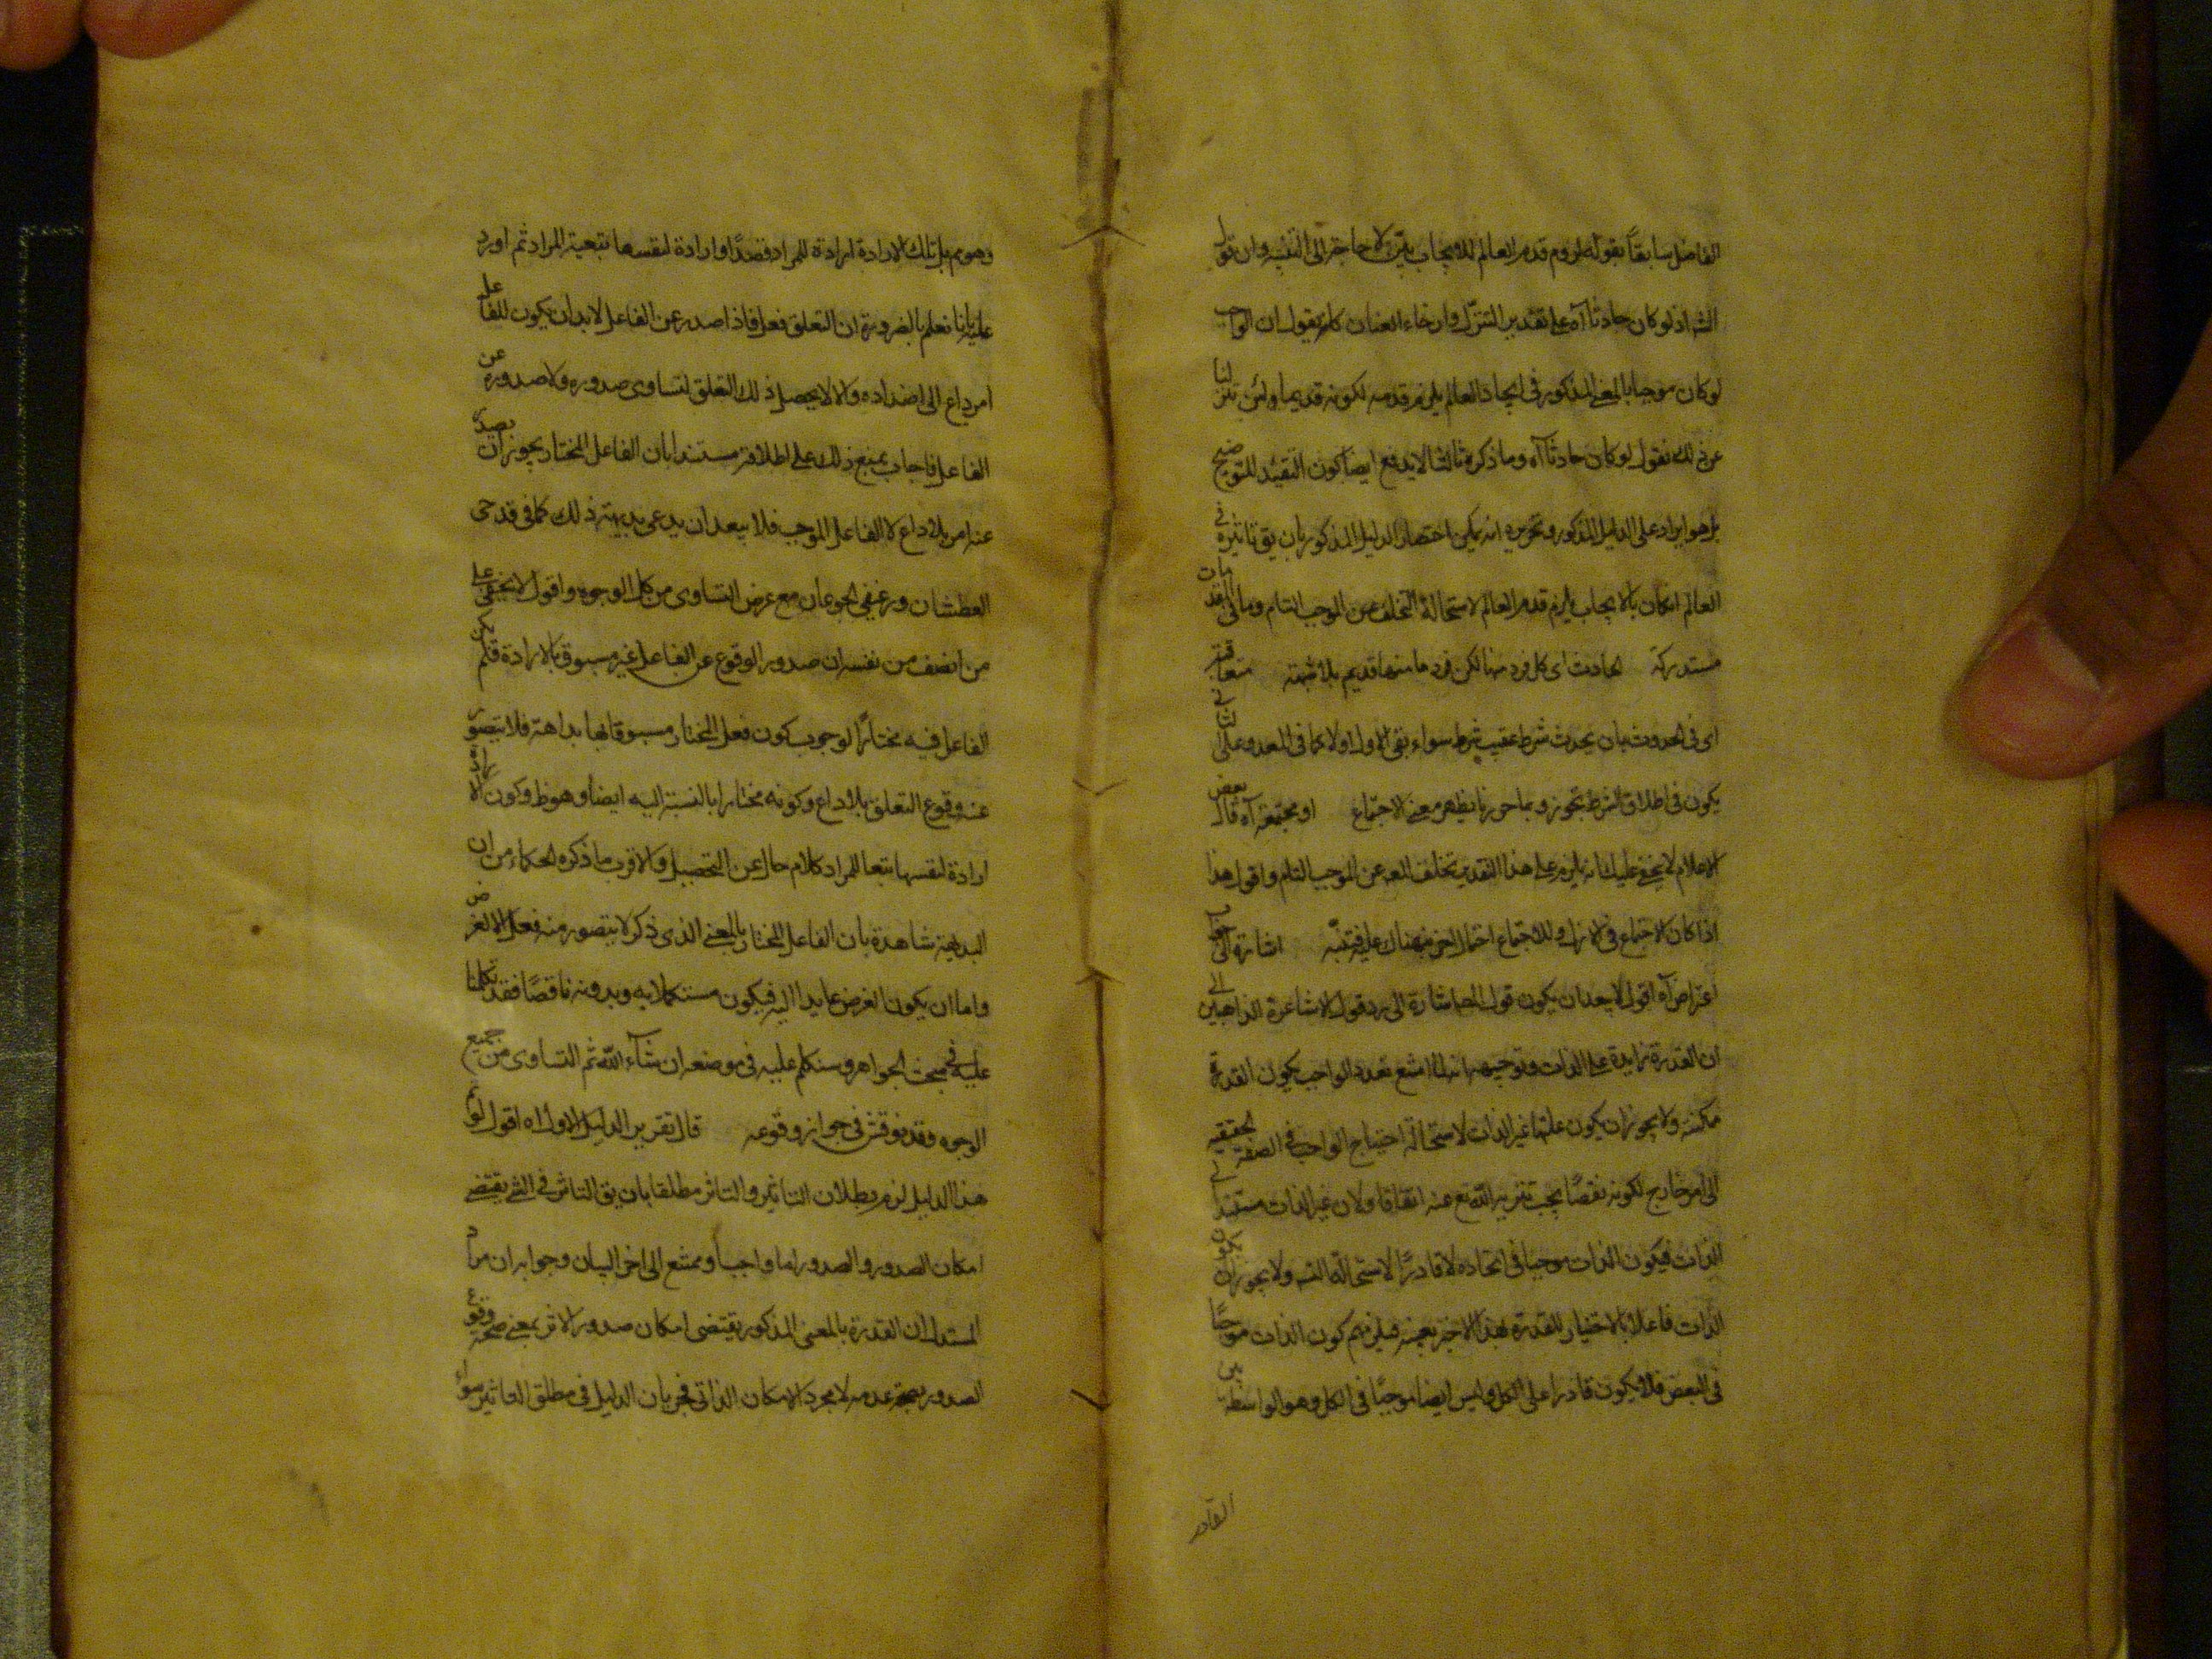 الفاضل سابقاً بقوله لزوم قدم العالم للايجاب بيّن لا حاجة الى التقييد وان قول
الشه اذ لو كان حادثا آه على تقدير التنزل وارخاء العنان كانه يقول ان الواجب
لو كان موجبا بالمعنى المذكور في ايجاد العالم يلزم قدمه لكونه قديما ولئن تنزلنا
عن ذلك نقول لو كان حادثا آه وما ذكره ثالثا لا يدفع ايضا كون التقييد للتوضيح
بل هو ايراد على الدليل المذكور وتحريره انه يمكن اختصار الدليل المذكور بان يق تاثيره في
العالم ان كان بالايجاب يلزم قدم العالم لاستحالة التخلف عن الموجب التام وما في المقدمات
مستدركة الحادث اى كل فرد منها لكن فرد ما منها قديم بلا شبهة متعاقبة
اى في الحدوث بان يحدث شرط عقيب شرط سواء بقى الاول او لا كما في المعد وعلى الثاني
يكون في اطلاق الشرط تجوز وبما حررنا يظهر معنى الاجتماع او مجتمعة آه قال بعض
الاعلام لا يخفى عليك انه يلزم على هذا التقدير تخلف المعه عن الموجب التام واقول هذا
اذا كان الاجتماع في الازل وللاجتماع احتمال اخر فتنبّه اشارة الى جواب
اعتراض آه اقول لا يبعد ان يكون قول المص اشارة الى رد قول الاشاعرة الذاهبين الى
ان القدرة زايدة على الذات وتوجيهه انه لما امتنع تعدد الواجب يكون القدرة
ممكنة ولا يجوز ان يكون علتها غير الذات لاستحالة احتياج الواجب في الصفة الحقيقية
الى امر خارج لكونه نقصًا يجب تنزيه الله تع عنه اتفاقا ولان غير الذات مستند الى
الذات فيكون الذات موجبا في ايجاده لا قادرًا لاستحالة التسه ولا يجوز ان يكون
الذات فاعلا بالاختيار للقدرة بهذا الاخير بعينه فيلزمهم كون الذات موجبًا
في البعض فلا يكون قادرا على الكل وليس ايضا موجبًا في الكل وهو الواسطة بين
القادر
وهو مم بل تلك الارادة ارادة للمراد قصدًا وارادة لنفسها بتبعية المراد ثم اورد
عليه بانا نعلم بالضرورة ان التعلق فعل فاذا صدر عن الفاعل لابد ان يكون للفاعل
امر داع الى اصداره والا لا يحصل ذلك التعلق لتساوى صدوره ولا صدوره عن
الفاعل فاجاب بمنع ذلك على اطلاقه مستندا بان الفاعل المختار يجوز ان يصدر
عنه امر بلا داع لا الفاعل الموجب فلا يبعد ان يدعى بديهته ذلك كما في قدحى
العطشان ورغيفى الجوعان مع فرض التساوى من كل الوجوه واقول لا يخفى على
من انصف من نفسه ان صدور الوقوع عن الفاعل غير مسبوق بالارادة فلم يكن
الفاعل فيه مختارًا لوجوب كون فعل المختار مسبوقا بها بداهة فلا يتصور
عنه وقوع التعلق بلا داع وكونه مختارا بالنسبة اليه ايضا وهو ظ وكون الارادة
ارادة لنفسها بتبعا للمراد كلام خال عن التحصيل والاقرب ما ذكره الحكماء من ان
البديهة شاهدة بان الفاعل المختار بالمعنى الذى ذكر لا يتصور منه فعل الا لغرض
واما ان يكون الغرض عايدا اليه فيكون مستكملا به وبدونه ناقصًا فقد تكلمنا
عليه في مبحث الجواهر وسنتكلم عليه في موضعه ان شآء الله ثم التساوى من جميع
الوجوه وقد نوقش في جواز وقوعه قال تقرير الدليل الاول اه اقول لو تم
هذا الدليل لزم بطلان التاثير والتاثر مطلقا بان يق التاثير في الشئ يقتضى
امكان الصدور والصدور اما واجب او ممتنع الى اخر البيان وجوابه ان مراد
المستدل ان القدرة بالمعنى المذكور يقتضى امكان صدور الاثر بمعنى صحة وقوع
الصدور وصحة عدمه لا مجرد الامكان الذاتى فجريان الدليل في مطلق التاثير سواء